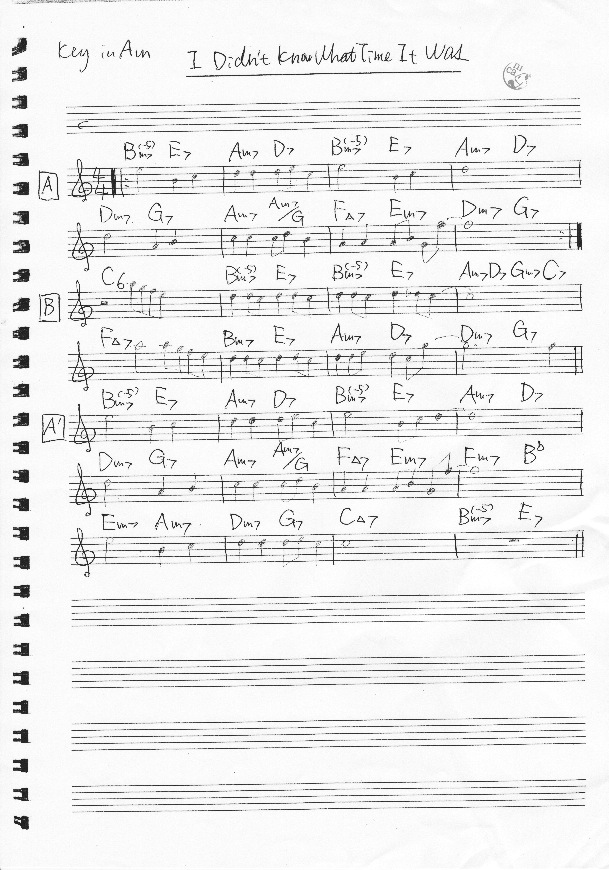 Key in Am
I Didn't Know What Time It Was
Bm7(-5) E7 Am7 D7 Bm7(-5) E7 Am7 D7
A
4/4
Dm7 G7 Am7 Am7/G F△7 Em7 Dm7 G7
C6 Bm7(-5) E7 Bm7(-5) E7 Am7 D7 Gm7 C7
B
F△7 Bm7 E7 Am7 D7 Dm7 G7
Bm7(-5) E7 Am7 D7 Bm7(-5) E7 Am7 D7
A'
Dm7 G7 Am7 Am7/G F△7 Em7 Fm7
Em7 Am7 Dm7 G7 C△7 Bm7(-5) E7